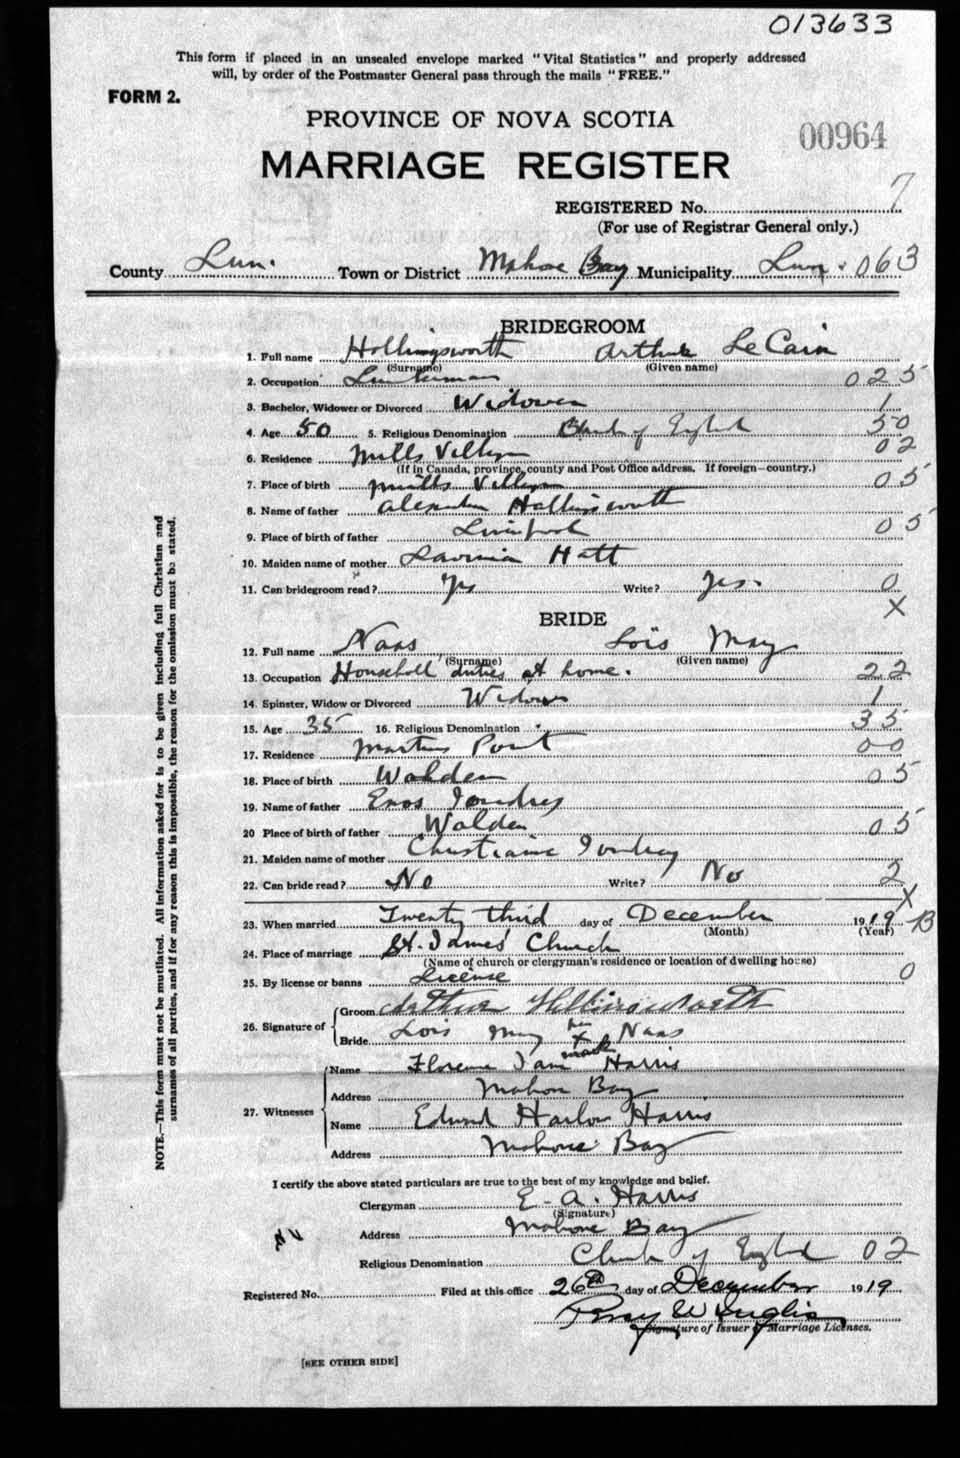 013633
This form if placed in an unsealed envelope marked "Vital Statistics" and properly addressed
will, by order of the Postmaster General pass through the mails "FREE."
FORM 2.
PROVINCE OF NOVA SCOTIA
00964
MARRIAGE REGISTER
REGISTERED No. 7
(For use of Registrar General only.)
County Lun. Town or District Mahone Bay Municipality Lun. 063
BRIDEGROOM
1. Full name Hollingsworth Arthur LeCain
(Surname) (Given name)
2. Occupation Lumberman 025
3. Bachelor, Widower or Divorced Widower 1
4. Age 50 5. Religious Denomination Church of England 50
6. Residence Mills Village 02
(If in Canada, province, county and Post Office address. If foreign—country.)
7. Place of birth Mills Village 05
8. Name of father Alexander Hollingsworth
9. Place of birth of father Liverpool 05
10. Maiden name of mother Lavinia Hatt
11. Can bridegroom read? Yes Write? Yes. 0
X
BRIDE
12. Full name Naas Lois May
(Surname) (Given name)
13. Occupation Household duties at home. 22
14. Spinster, Widow or Divorced Widow 1
15. Age 35 16. Religious Denomination 35
17. Residence Martins Point 00
18. Place of birth Walden 05
19. Name of father Enos
20 Place of birth of father Walden 05
21. Maiden name of mother Christianna
22. Can bride read? No Write? No 2
X
23. When married Twenty third day of December 1919 B
(Month) (Year)
24. Place of marriage St. James' Church
(Name of church or clergyman's residence or location of dwelling house)
25. By license or banns License 0
26. Signature of Groom Arthur Hollingsworth
Bride Lois May her X mark Naas
27. Witnesses Name Florence Harris
Address Mahone Bay
Name Edward Harlow Harris
Address Mahone Bay
I certify the above stated particulars are true to the best of my knowledge and belief.
Clergyman E. A. Harris
(Signature)
Address Mahone Bay
Religious Denomination Church of England 02
Registered No. Filed at this office 26th day of December 1919
Percy W Inglis
Signature of Issuer of Marriage Licenses.
[SEE OTHER SIDE]
NOTE.—This form must not be mutilated. All information asked for is to be given including full Christian and
surnames of all parties, and if for any reason this is impossible, the reason for the omission must be stated.